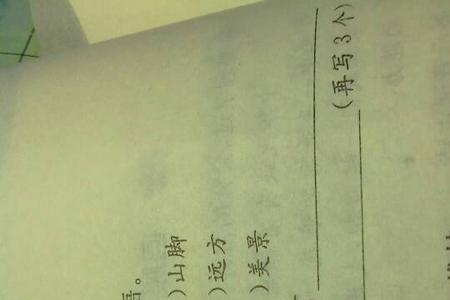 语。
)山脚
)远方
)美景
(再写3个)